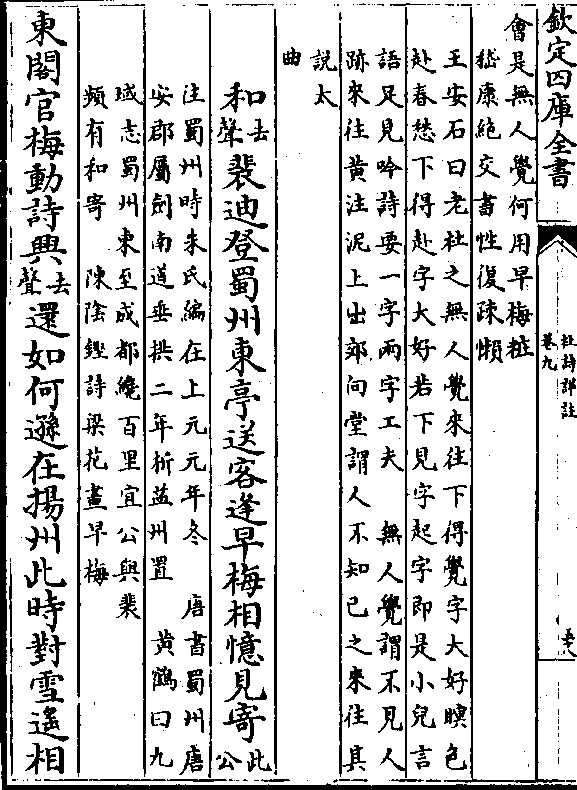 欽定四庫全書
杜詩詳註
卷九
會是無人覺何用早梅粧
嵇康絶交書性復疎懶
王安石曰老杜之無人覺來往下得覺字大好暝色
赴春愁下得赴字大好若下見字起字即是小兒言
語足見吟詩要一字兩字工夫　無人覺謂不見人
跡來往黄注泥上出郊向堂謂人不知已之來往其
説太
曲
和去聲裴迪登蜀州東亭送客逢早梅相憶見寄此公
注蜀州時朱氏編在上元元年冬　唐書蜀州唐
安郡屬劍南道垂拱二年析益州置　黄鶴曰九
域志蜀州東至成都纔百里宜公與裴
頻有和寄　陳陰鏗詩梁花畫早梅
東閣官梅動詩興去聲還如何遜在揚州此時對雪遥相